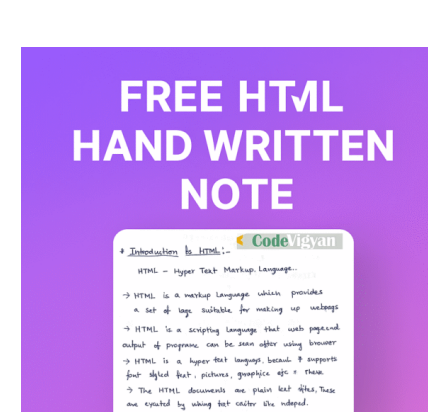 FREE HTML
HAND WRITTEN
NOTE
CodeVigyan
→ Introduction to HTML:-
HTML - Hyper Text Markup Language..
→ HTML is a markup language which provides
a set of tags suitable for making up webpags
→ HTML is a scripting language that web page and
output of programe can be sean after using browser
→ HTML is a hyper text languags, becaul supports
font styled text, pictures, graphics etc = these
→ The HTML documents are plain text
are by using text like